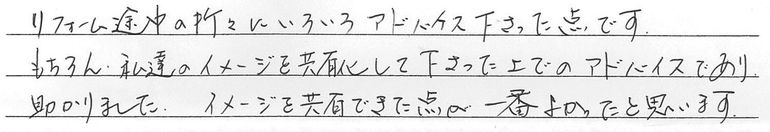 リフォーム途中の折々にいろいろアドバイス下さった点です。
もちろん、私達のイメージを共有化して下さった上でのアドバイスであり
助かりました。イメージを共有できた点が一番よかったと思います。